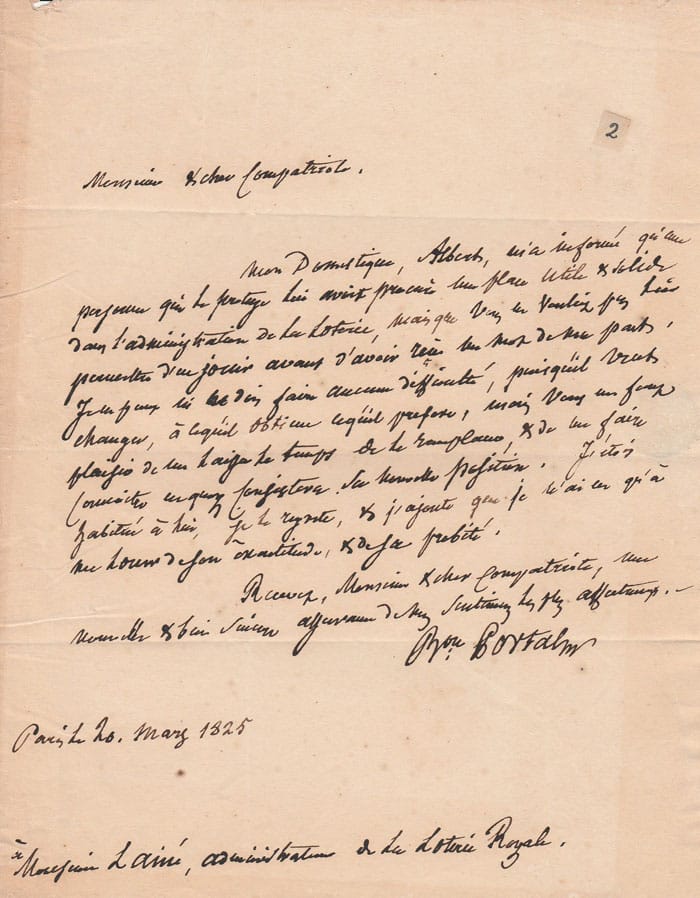 2
Monsieur & cher Compatriote.
Mon Domestique, Albert, m'a informé qu'une
personne qui le protege lui avoit procuré une place utile & solide
dans l'administration de la Loterie, mais que vous ne vouliez pas lui
permettre d'en jouir avant d'avoir reçu un mot de ma part.
Je ne peux ni ne dois faire aucune difficulté, puisqu'il veut
changer, à ce qu'il obtienne ce qu'il prefere, mais vous me ferez
plaisir de me laisser le temps de le remplacer, & de me faire
connoitre en quoi consistera sa nouvelle position. J'étois
habitué à lui, je le regrette, & j'ajoute que je n'ai eu qu'à
me louer de son exactitude, & de sa probité.
Recevez, Monsieur & cher Compatriote, une
nouvelle & bien sincere assurance de mes sentimens les plus affectueux.
Bon. Portal
Paris le 20. Mars 1825
à Monsieur Lainé, administrateur de la Loterie Royale.